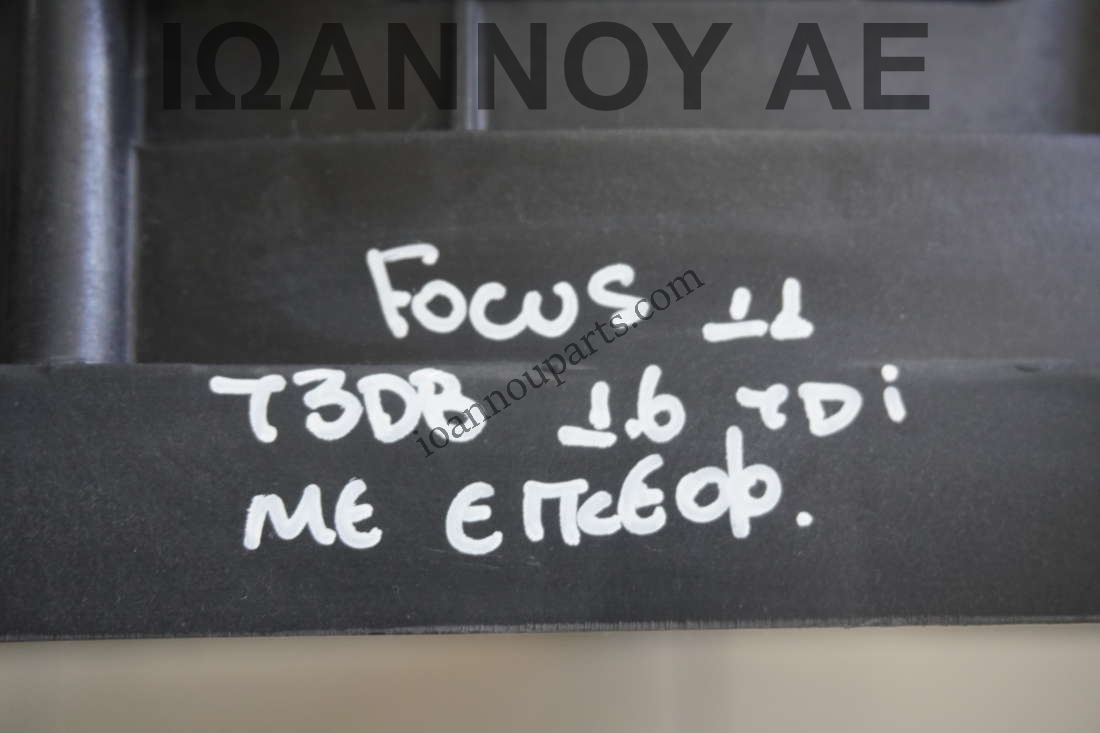 ΙΩΑΝΝΟΥ ΑΕ
Focus 11
T3DB 1.6 TDi
ME ΕΠCΕΟΦ.
ioannouparts.com